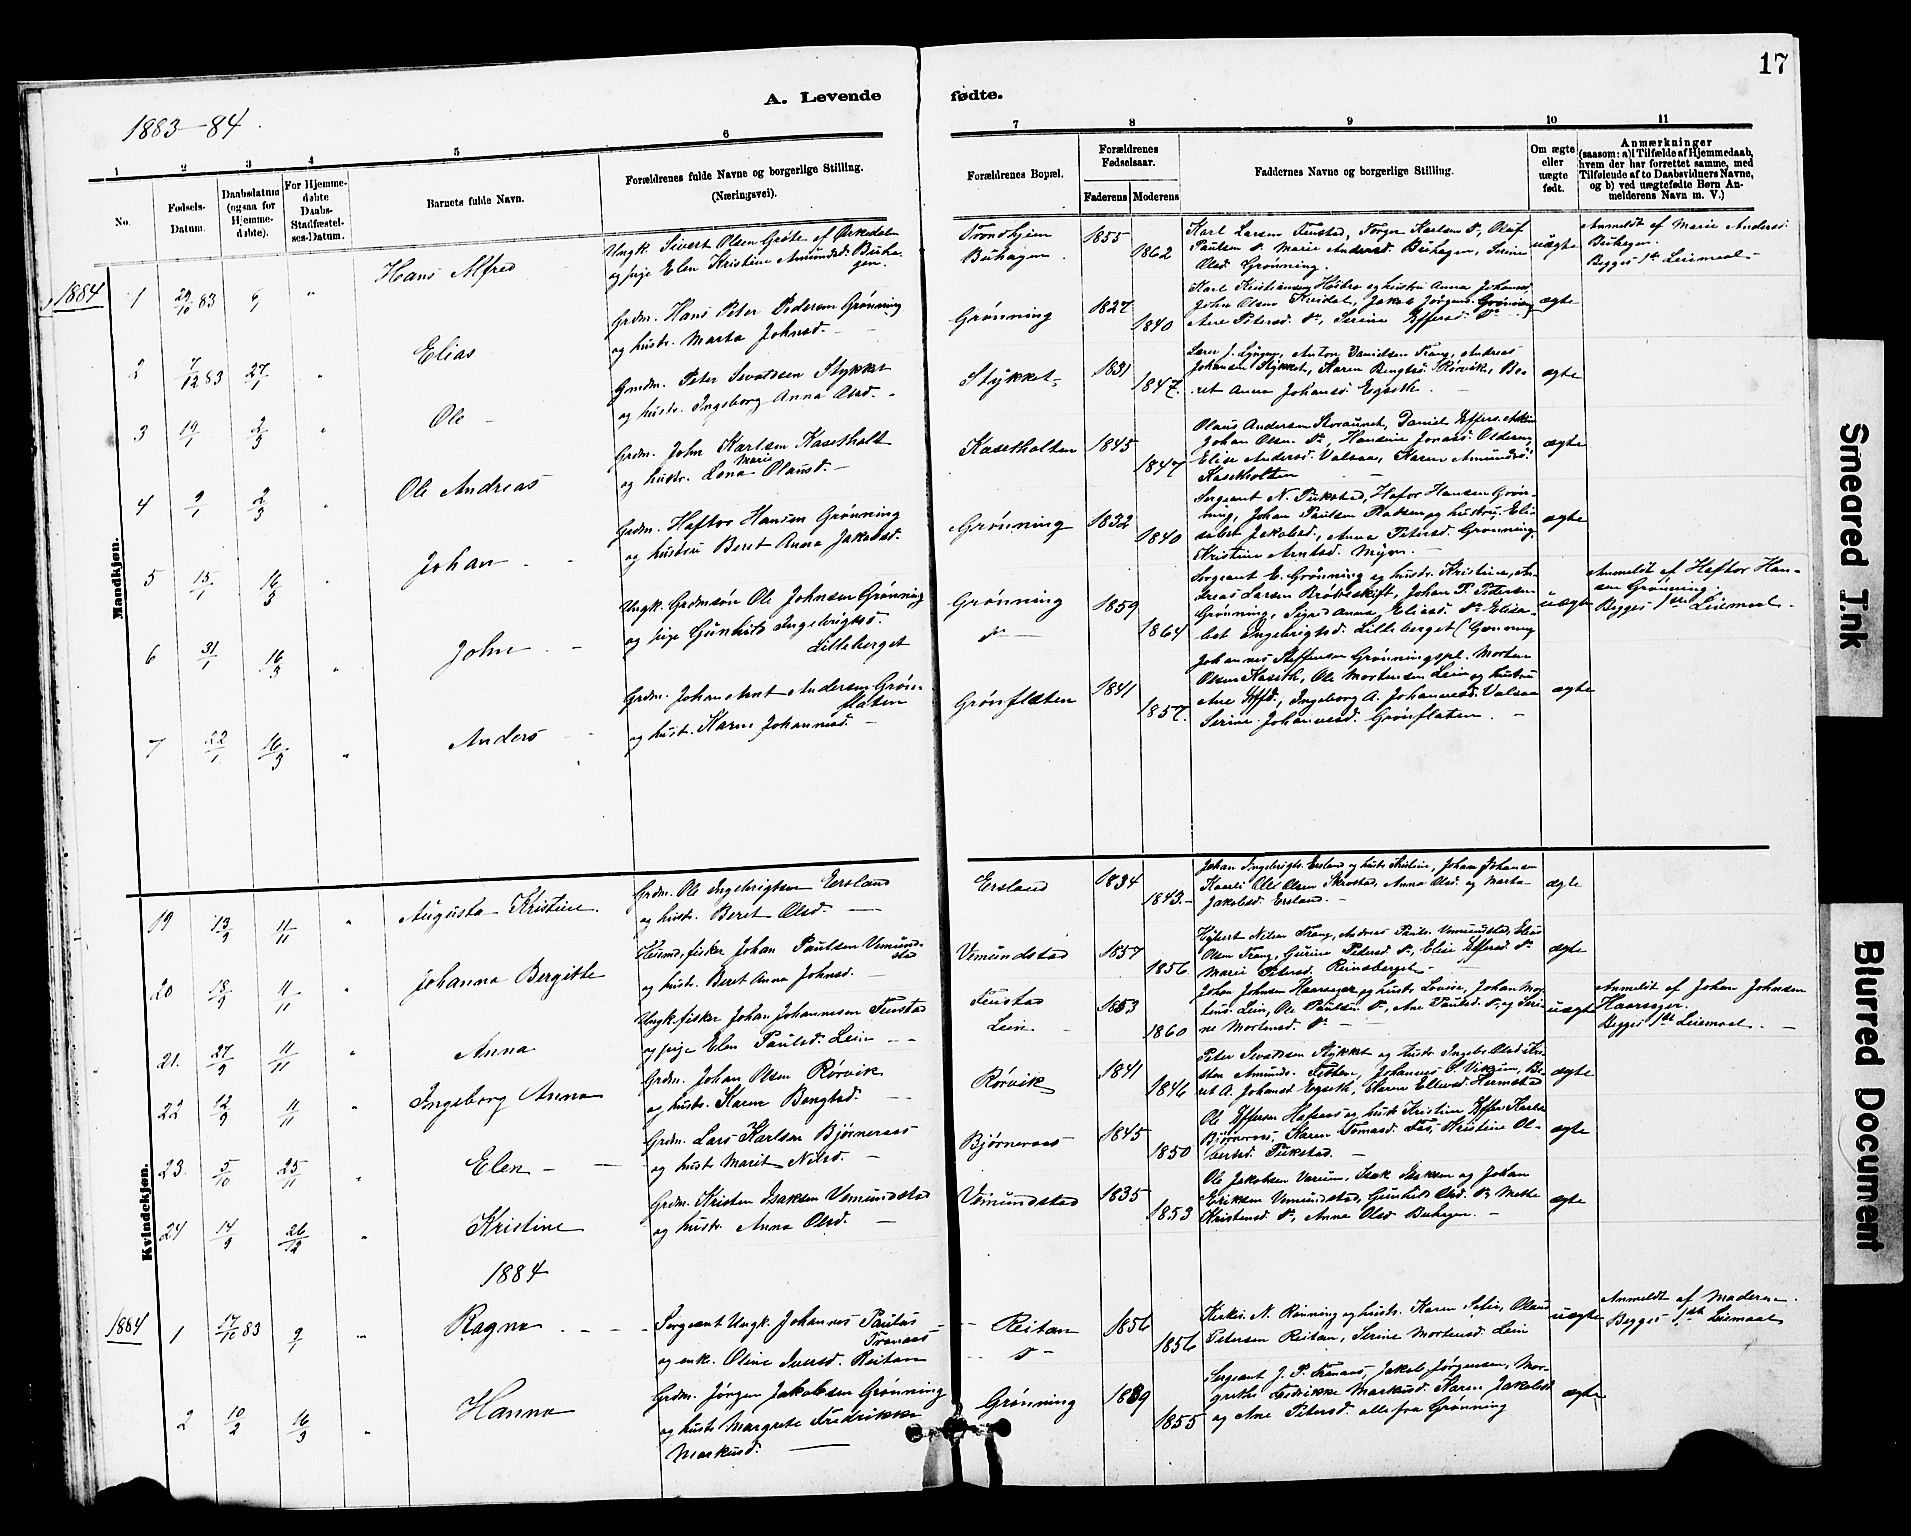 17
A. Levende fødte.
1883-84.
1 2 3 4 5 6 7 8 9 10 11
No.
Fødsels-Datum.
Daabsdatum (ogsaa for Hjemme-døbte).
For Hjemme-døbte Daabs-Stadfæstel-ses-Datum.
Barnets fulde Navn.
Forældrenes fulde Navne og borgerlige Stilling. (Næringsvei).
Forældrenes Bopæl.
Forældrenes Fødselsaar.
Faderens Moderens
Faddernes Navne og borgerlige Stilling.
Om ægte eller uægte født.
Anmærkninger
(saasom: a) I Tilfælde af Hjemmedaab, hvem der har forrettet samme, med Tilføiende af to Daabsvidners Navne, og b) ved uægtefødte Børn Anmelderens Navn m. V.)
Mandkjøn.
1884
1 29/10 83 6/1 " Hans Alfred
Ungk. Sivert Olsen Grøte af Orkedalen
og pige Elen Kristine Amundsd. Buha-
gen.
Trondhjem
Buhagen
1855
1862
Karl Larsen Teustad, Torger Karlsen do, Oluf
Paulsen do Marie Andersd. Buhagen, Serine
Olsd. Grønning.
uægte
Anmeldt af Marie Andersd.
Buhagen.
Begges 1ste Leiermaal
2 7/12 83 27/1 " Elias
Grdm. Hans Peter Pedersen Grønning
og hustr. Marta Johnsd.
Grønning
1827
1840
Karl Kristiansen Høibro og hustru Anna Johansd
John Olsen Kvidal, Jakob Jørgens. Grønning
Ane Petersd. do, Serine Effersd. do
ægte
3 19/1 2/3 " Ole
Grdm. Peter Sevaldsen Stykket
og hustr. Ingeborg Anna Olsd.
Stykket
1831
1847.
Lærer J. Lyngny, Anton Danielsen Trang, Andreas
Johansen Stykket, Karen Bengtsd. Rørvik, Be-
ret Anna Johansd Egseth
ægte
4 9/1 2/3 " Ole Andreas
Grdm. John Karlsen Kasetholt
og hustr. Lena Marie Olausd.
Kasetholten
1845
1847
Olaus Andersen Storaunet, Daniel Effers.
Johan Olsen do, Hansine Jonasd Olderen,
Elise Andersd. Valsaa, Karen Amundsd.
Kasetholten
ægte
5 15/1 16/3 " Johan
Grdm. Haftor Hansen Grønning
og hustru Beret Anna Jakobsd.
Grønning
1832
1840
Sergeant N. Tirkstad, Hafor Hansen Grøn-
ning, Johan Paulsen Pladsen og hustru, Eli-
sabet Jakobsd., Anna Petersd. Grønning,
Kristine Arntsd. Myrn.
ægte
6 31/1 16/3 " John
Ungk. Grdmsøn Ole Johnsen Grønning
og pige Gunhild Ingebrigtsd.
Lilleberget
Grønning
do
1859
1864
Sergeant E. Grønning og hustr. Kristine, An-
dreas Larsen Brøteskift, Johan P. Petersen
Grønning, Sigrid Anna Eliasd. do Elisa-
bet Ingebrigtsd. Lilleberget (Grønning
uægte
Anmeldt af Haftor Han-
sen Grønning
Begges 1ste Leiermaal
7 22/1 16/3 " Anders
Grdm. Johan Arnt Andersen Grøn-
flaten
og hust. Karen Johannesd.
Grønflaten
1841
1857.
Johannes Steffensen Grønningspl. Morten
Olsen Kaseth, Ole Mortensen Lein og hustru
Ane Effsd., Ingeborg A. Johannesd. Valsaa
Serine Johannesd. Grønflaten.
ægte
Kvindekjøn.
19 13/9 11/11 " Augusta Kristine.
Grdm. Ole Ingebrigtsen Eersland
og hustr. Beret Olsd.
Ersland
1834
1843.
Johan Ingebrigts. Ersland og hustr. Kristine, Johan Johansen
Kaarli Ole Olsen Skrostad, Anna Olsd. og Marta
Jakobsd. Ersland.
ægte
20 18/9 11/11 " Johanna Bergitte
Husmd., fisker Johan Paulsen Vemund-
stad
og hustr. Beret Anna Johnsd.
Vemundstad
1857
1856
Ejbert Nilsen Trang, Andreas Pauls. Vemundstad, Elias
Olsen Trang, Gurine Petersd. do, Elise Effersd. do
Marie Petersd. Reinsberget
ægte
21. 27/9 11/11 " Anna
Ungk. fisker Johan Johannesen Teustad
og pige Elen Paulsd. Lein
Teustad
Lein
1853
1860
Johan Johnsen Haarsager og hustr. Louise, Johan Mor-
tens. Lein, Ole Paulsen do, Ane Paulsd. do og Seri-
ne Mortensd. do
uægte
Anmeldt af Johan Johnsen
Haarsager.
Begges 1ste Leiermaal.
22 12/9 11/11 " Ingeborg Anna
Grdm. Johan Olsen Rørvik
og hustr. Karen Bengtsd.
Rørvik
1841
1846
Peter Sevaldsen Stykket og hustr. Ingeb. Olsd Kri-
sten Amunds. Tettan, Johannes S. Vikan, Be-
ret A. Johansd Egseth, Karen Ellevsd Hermstad
ægte
23. 5/10 25/11 " Elen
Grdm. Lars Karlsen Bjørneraas
og hustr. Marit Nilsd.
Bjørneraas
1845
1850
Ole Effersen Hafsaas og hustr. Kristine Effer Karls.
Bjørneraas, Karen Tomasd. Fas, Kristine Ol-
bersd. Tirkstad.
ægte
24 14/9 26/12 " Kristine
Grdm. Kristen Isaksen Vemundstad
og hustr. Anna Olsd.
Vemundstad
1835
1853
Ole Jakobsen Varum, Isak Isaksen og Johan
Eriksen Vemundstad, Gunhild Olsd. do Mette
Kristensd. do, Anne Olsd Buhagen.
ægte
1884
1884
1 17/10 83 9/1 " Ragna
Sergeant Ungk. Johannes Paulus
Tranaas
og enke. Oline Iversd. Reitan
Reitan
do
1856
1856
Kirkes. N. Rønning og hustr. Karen Sofie, Olaus
Petersen Reitan, Serine Mortensd. Lein
uægte
Anmeldt af Moderen.
Begges 1ste Leiermaal
2 10/2 16/3 " Hanna
Grdm. Jørgen Jakobsen Grønning
og hustr Margrete Fredrikke
Markusd.
Grønning
1859
1855
Sergeant J. P. Tranaas, Jakob Jørgensen, Mar-
grethe Fredrikke Markusd. Karen Jakobsd
og Ane Petersd. alle fra Grønning
ægte
Smeared Ink
Blurred Document